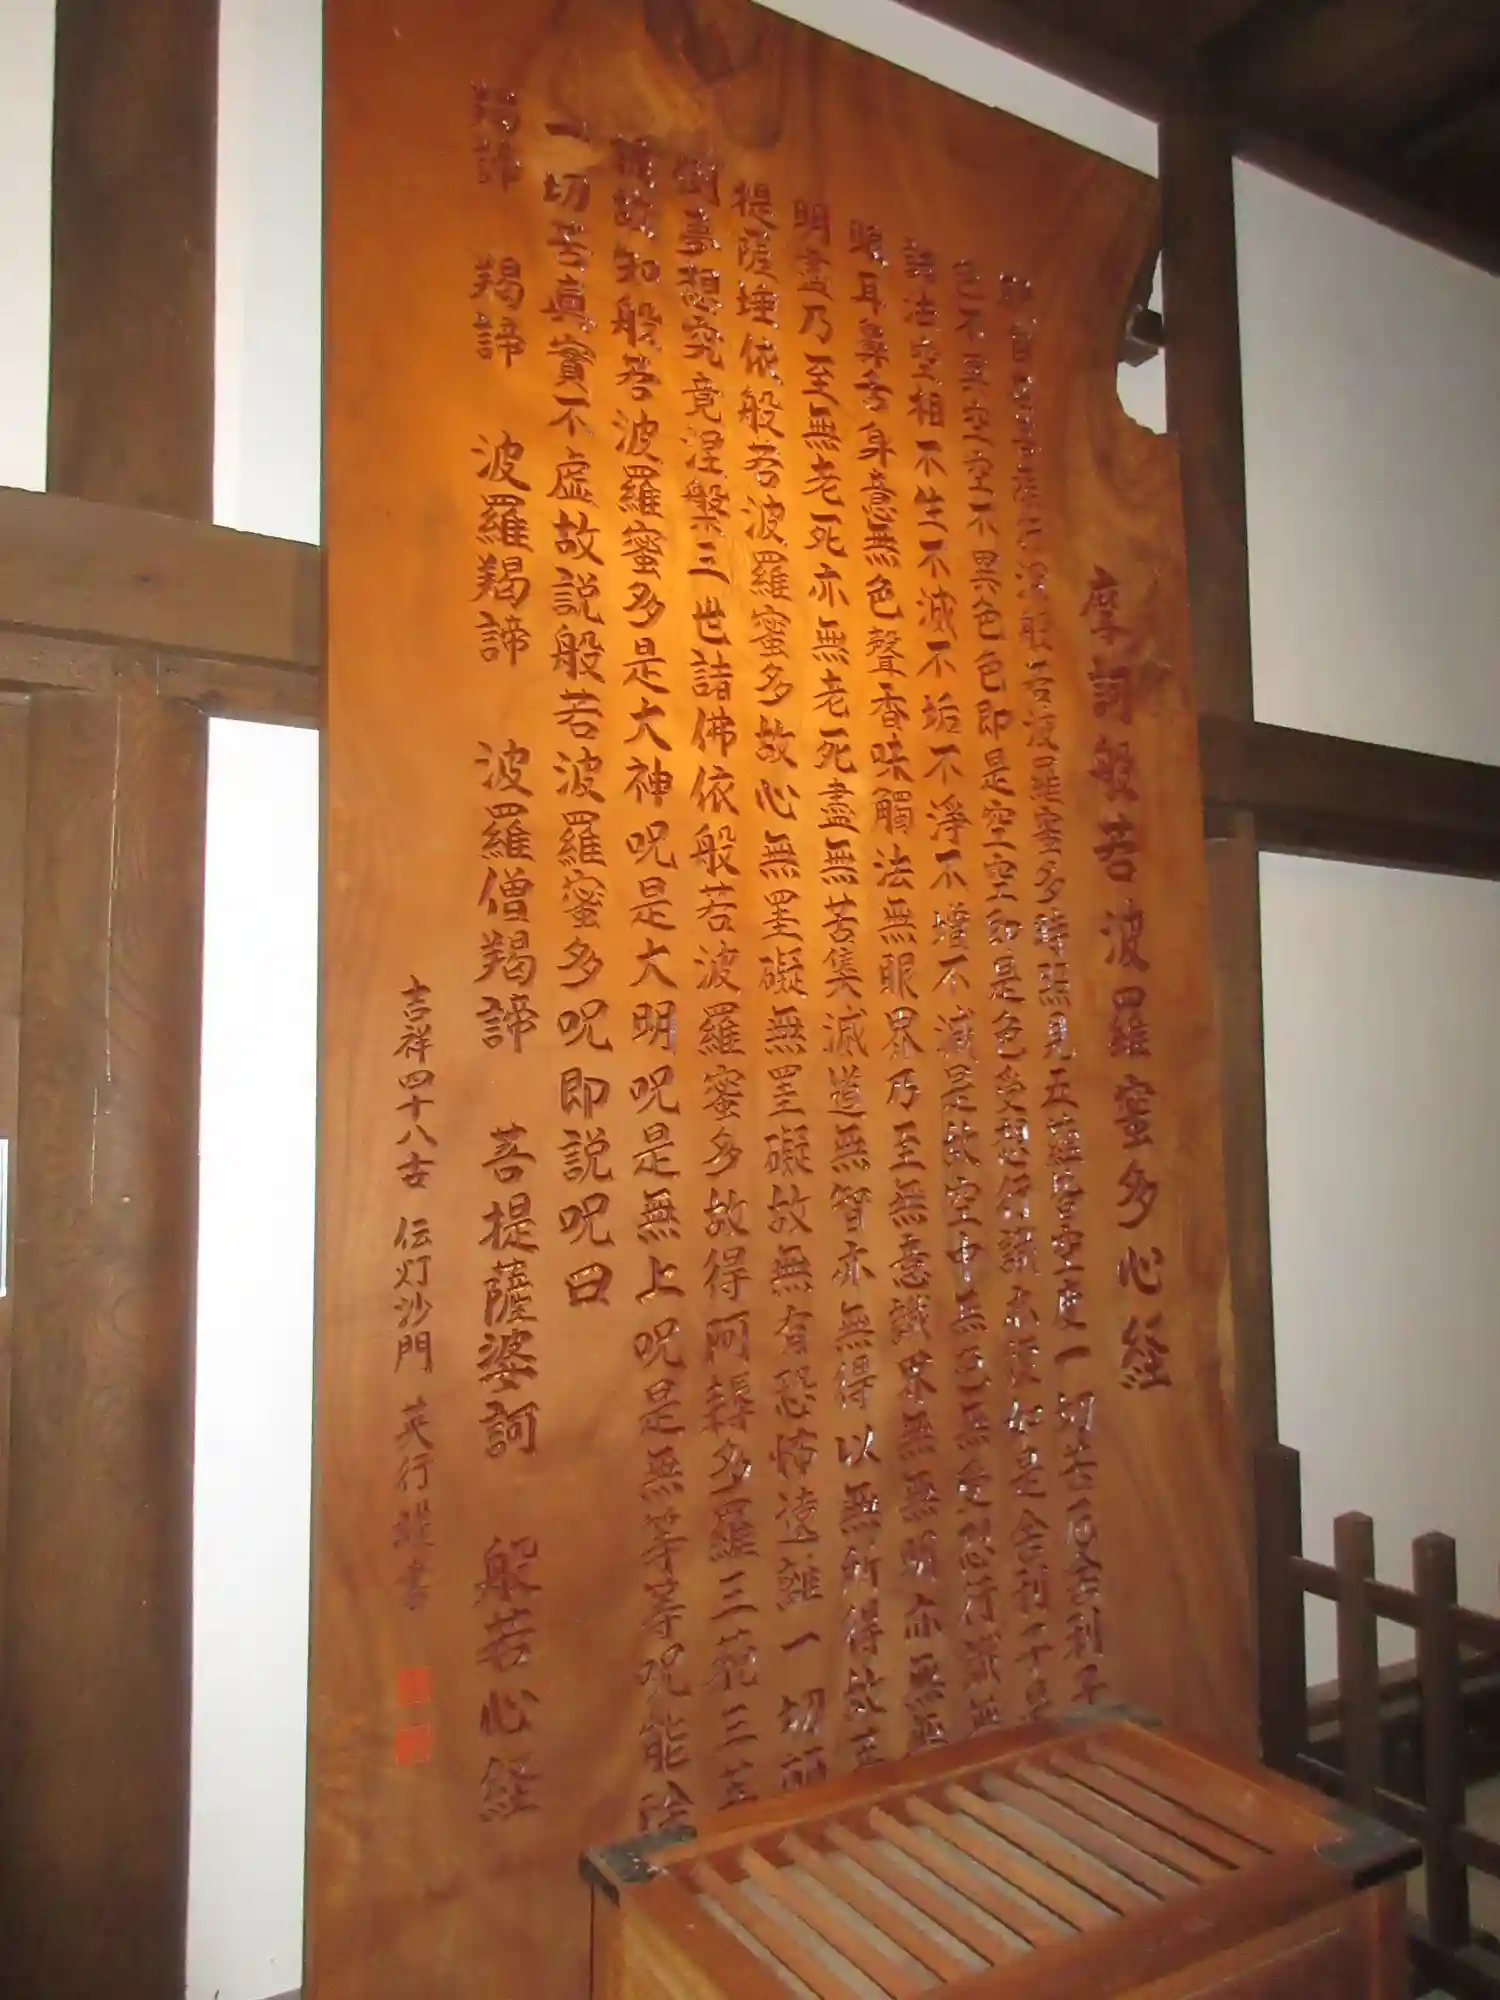 摩訶般若波羅蜜多心経
薩行深般若波羅蜜多時照見五蘊皆空度一切苦厄舎利子
色不異空空不異色色即是空空即是色受想行識亦復如是舎利子是
諸法空相不生不滅不垢不淨不増不減是故空中無色無受想行識無
眼耳鼻舌身意無色聲香味觸法無眼界乃至無意識界無無明亦無無
明盡乃至無老死亦無老死盡無苦集滅道無智亦無得以無所得故菩
提薩埵依般若波羅蜜多故心無罣礙無罣礙故無有恐怖遠離一切顛
倒夢想究竟涅槃三世諸佛依般若波羅蜜多故得阿耨多羅三藐三菩
提故知般若波羅蜜多是大神呪是大明呪是無上呪是無等等呪能除
一切苦眞實不虚故説般若波羅蜜多呪即説呪曰
羯諦 羯諦 波羅羯諦 波羅僧羯諦 菩提薩婆訶 般若心経
吉祥四十八古 伝灯沙門 英行 書